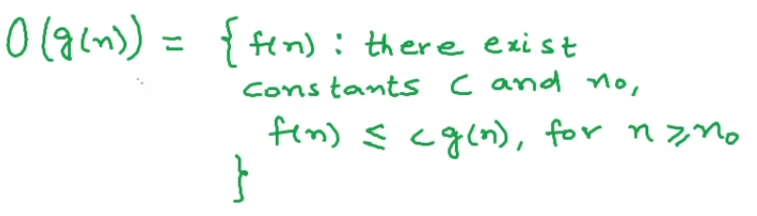 O(g(n)) = { f(n) : there exist
constants c and n₀,
f(n) ≤ cg(n), for n ⩾ n₀
}